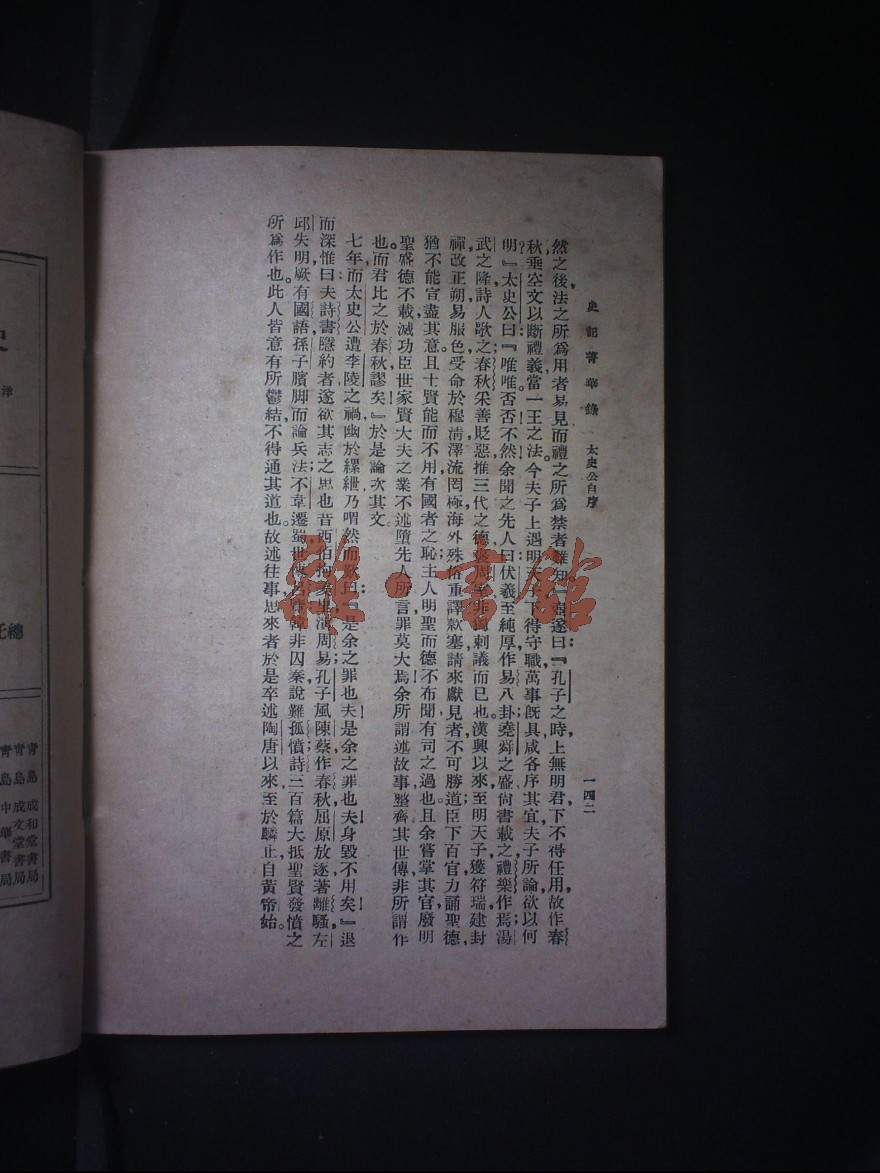 史記菁華錄 太史公自序 一四二
然之後法之所爲用者易見而禮之所爲禁者難知。」壺遂曰:『孔子之時,上無明君,下不得任用,故作春
秋,垂空文以斷禮義,當一王之法。今夫子上遇明天子,下得守職,萬事既具,咸各序其宜,夫子所論,欲以何
明?』太史公曰:『唯唯!否否!不然。余聞之先人曰:伏羲至純厚,作易八卦;堯舜之盛,尙書載之,禮樂作焉;湯
武之隆,詩人歌之;春秋采善貶惡,推三代之德,褒周室,非獨刺譏而已也。漢興以來,至明天子,獲符瑞,建封
禪,改正朔,易服色,受命於穆淸,澤流罔極,海外殊俗,重譯款塞,請來獻見者,不可勝道;臣下百官,力誦聖德,
猶不能宣盡其意。且士賢能而不用,有國者之恥;主人明聖而德不布聞,有司之過也。且余嘗掌其官,廢明
聖盛德不載,滅功臣世家賢大夫之業不述,墮先人所言,罪莫大焉。余所謂述故事,整齊其世傳,非所謂作
也。而君比之於春秋,謬矣。』於是論次其文。
七年而太史公遭李陵之禍,幽於縲紲。乃喟然而歎曰:『是余之罪也夫!是余之罪也夫!身毀不用矣!』退
而深惟曰:夫詩書隱約者,遂欲其志之思也。昔西伯拘羑里,演周易;孔子厄陳蔡,作春秋;屈原放逐,著離騷;左
邱失明,厥有國語;孫子臏脚,而論兵法;不韋遷蜀,世傳呂覽;韓非囚秦,說難孤憤;詩三百篇,大抵聖賢發憤之
所爲作也。此人皆意有所鬱結,不得通其道也。故述往事,思來者。於是卒述陶唐以來,至於麟止,自黃帝始。
雒·書館
青島成和堂書局
青島成文堂書局
靑島中華書局